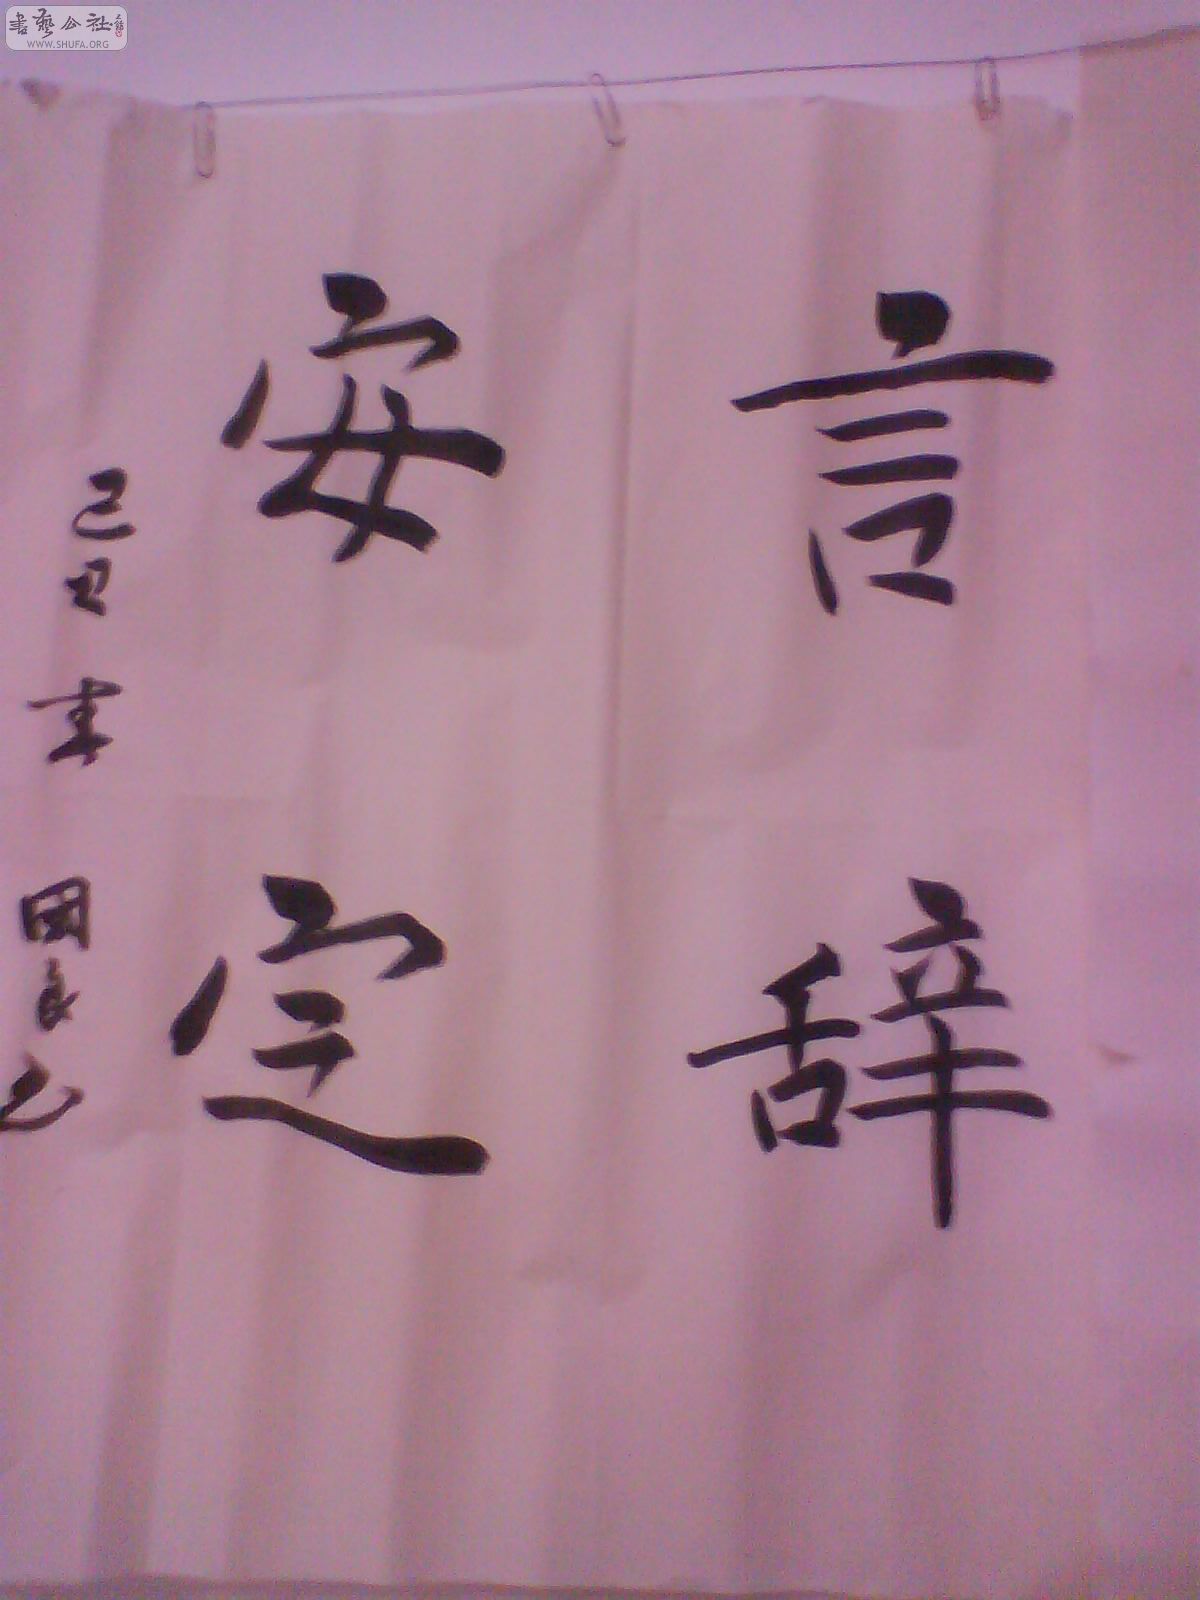 言辞
安定
己丑春 國良书
書藝公社
WWW.SHUFA.ORG